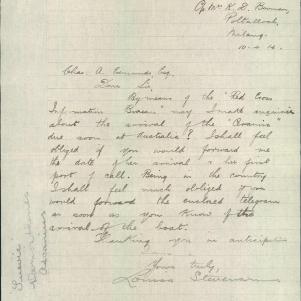 C/o Mrs K. D. Bowman,
Poltalloch,
10-4-16.
Chas. A. Edmunds Esq.
Dear Sir,
By means of the "Red Cross
Information Bureau" may I make inquiries
about the arrival of the
due soon at Australia? I shall feel
obliged if you would forward me
the date of her arrival & her first
port of call. Being in the country
I shall feel much obliged if you
would forward the enclosed telegram
as soon as you know of the
arrival of the boat.
Thanking you in anticipation
Yours truly,
Louisa